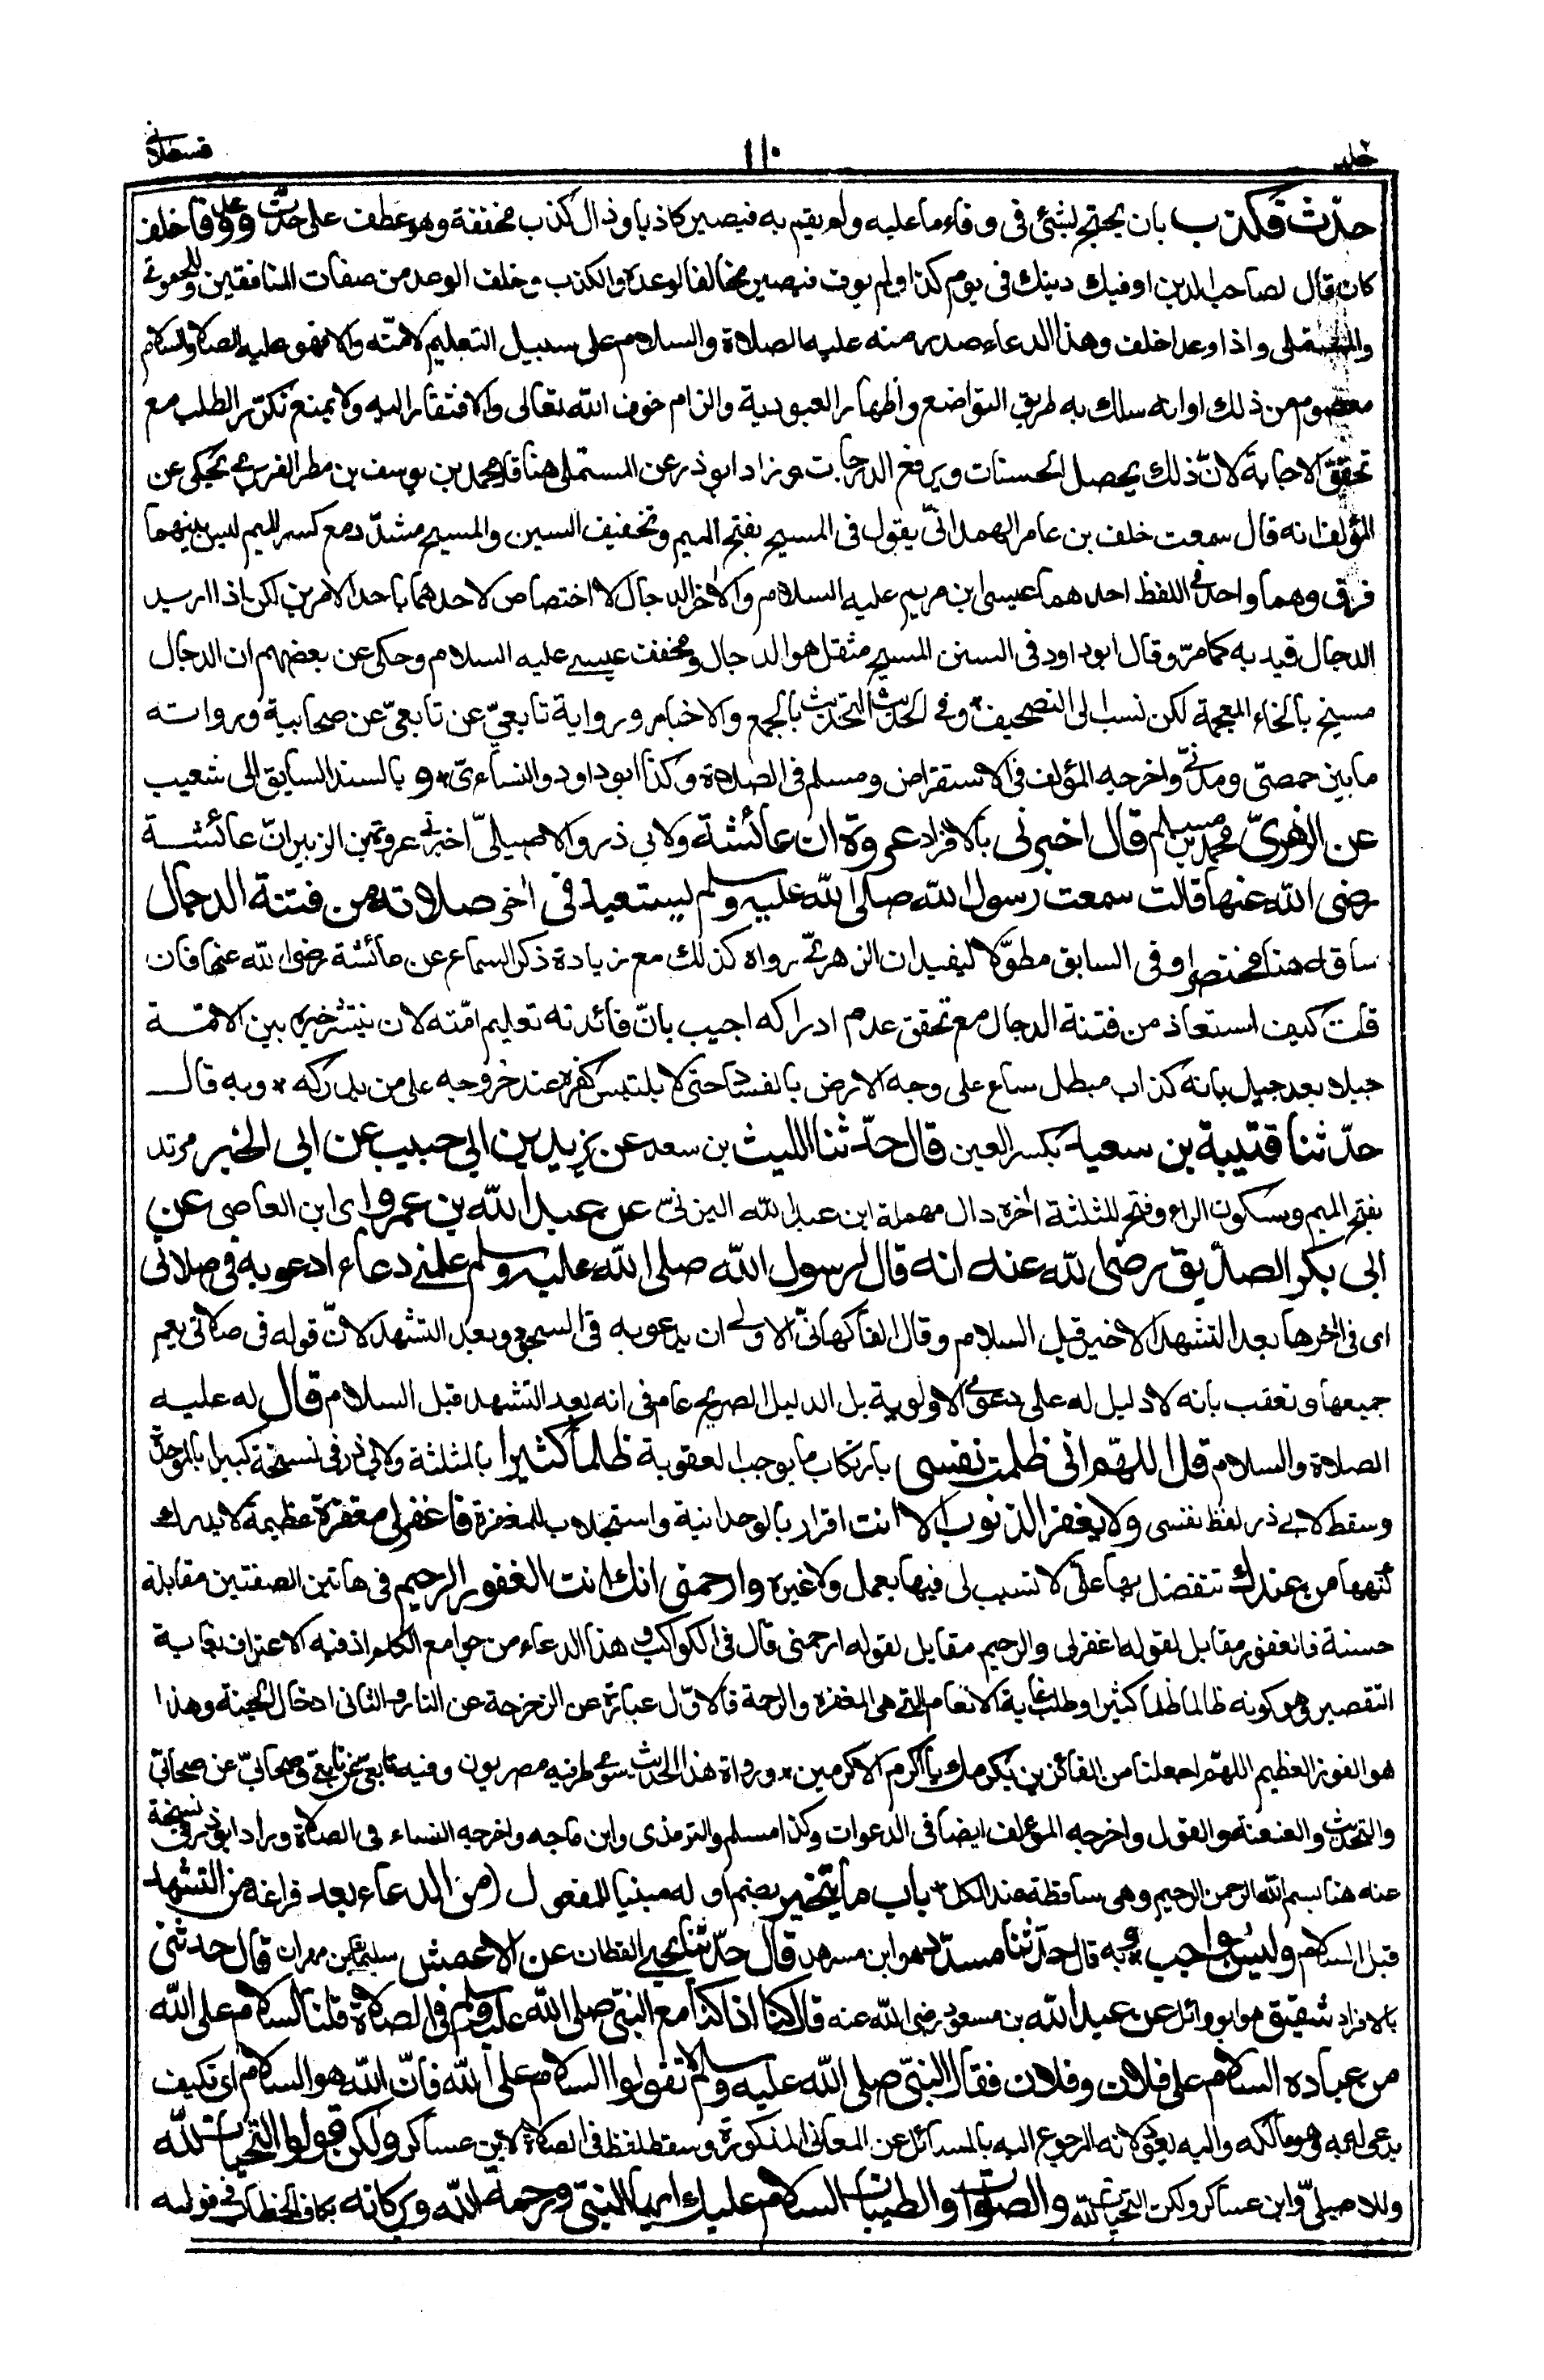 قسطلاني
١١٠
جلد
حدّث فكذب بان يحتج لشئ فى وفاء ما عليه ولم يقم به فيصير كاذبا وذال كذب مخففة وهو عطف على حدّث ووعد فاخلف
كان قال لصاحب الدين اوفيك دينك فى يوم كذا ولم يوف فيصير مخالفا لوعده والكذب وخلف الوعد من صفات المنافقين وللحموي
والمستملى واذا وعد اخلف وهذا الدعاء صدر منه عليه الصلاة والسلام على سبيل التعليم لامّته والا فهو عليه الصلاة والسلام
معصوم من ذلك او انه سلك به طريق التواضع واظهار العبودية والزام خوف الله تعالى والافتقار اليه ولا يمنع تكرّر الطلب مع
تحقق الاجابة لانّ ذلك يحصل الحسنات ويرفع الدرجات وزاد ابو ذر عن المستملى هنا قال محمد بن يوسف بن مطر الفربري يحكى عن
المؤلف انه قال سمعت خلف بن عامر الهمدانىّ يقول فى المسيح بفتح الميم وتخفيف السين والمسيح مشدّد مع كسر الميم ليس بينهما
فرق وهما واحد فى اللفظ احدهما عيسى ابن مريم عليه السلام والآخر الدجال لا اختصاص لاحدهما باحد الامرين لكن اذا اريد
الدجال قيد به كما مرّ وقال ابو داود فى السنن المسيح مثقل هو الدجال ومخفف عيسى عليه السلام وحكى عن بعضهم ان الدجال
مسيخ بالخاء المعجمة لكن نسب الى التصحيف * وفى الحديث التحديث بالجمع والاخبار ورواية تابعيّ عن تابعيّ عن صحابية ورواته
ما بين حمصىّ ومدنىّ واخرجه المؤلف فى الاستقراض ومسلم فى الصلاة وكذا ابو داود والنساءىّ * و بالسند السابق الى شعيب
عن الزهرىّ محمد بن مسلم قال اخبرنى بالافراد عروة ان عائشة ولابي ذر والاصيلىّ اخبرنى عروة بن الزبير انّ عائشة
رضى الله عنها قالت سمعت رسول الله صلى الله عليه وسلم يستعيذ فى آخر صلاته من فتنة الدجال
ساقه هنا مختصرا وفى السابق مطوّلا ليفيد ان الزهرىّ رواه كذلك مع زيادة ذكر السماع عن عائشة رضى الله عنها فان
قلت كيف استعاذ من فتنة الدجال مع تحقق عدم ادراكه اجيب بانّ فائدته تعليم امّته لان ينتشر خبره بين الامّة
جيلا بعد جيل بانه كذاب مبطل ساع على وجه الارض بالفساد حتى لا يلتبس كفره عند خروجه على من يدركه * وبه قال
حدّثنا قتيبة بن سعيد بكسر العين قال حدّثنا الليث بن سعد عن يزيد بن ابي حبيب عن ابى الخير مرثد
بفتح الميم وسكون الراء وفتح المثلثة آخره دال مهملة ابن عبد الله اليزنىّ عن عبد الله بن عمرو اى ابن العاصى عن
ابى بكر الصدّيق رضى الله عنه انه قال لرسول الله صلى الله عليه وسلم علمنى دعاء ادعو به فى صلاتى
اى فى اخرها بعد التشهد الاخير قبل السلام وقال الفاكهانىّ الاولى ان يدعو به فى السجود وبعد التشهد لانّ قوله فى صلاتى يعم
جميعها وتعقب بانه لا دليل له على دعوى الاولوية بل الدليل الصريح عام فى انه بعد التشهد قبل السلام قال له عليه
الصلاة والسلام قل اللهمّ انى ظلمت نفسى بارتكاب ما يوجب العقوبة ظلما كثيرا بالمثلثة ولابى ذر فى نسخة كبيرا بالموحدة
وسقط لابى ذر لفظ نفسى ولا يغفر الذنوب الا انت اقرار بالوحدانية واستجلاب للمغفرة فاغفر لى مغفرة عظيمة لا يدرك
كنهها من عندك تتفضل بها علىّ لا تسبب لى فيها بعمل ولا غيره وارحمنى انك انت الغفور الرحيم فى هاتين الصفتين مقابلة
حسنة فالغفور مقابل لقوله اغفر لى والرحيم مقابل لقوله ارحمنى قال فى الكواكب وهذا الدعاء من جوامع الكلم اذ فيه الاعتراف بغاية
التقصير وهو كونه ظالما ظلما كثيرا وطلب غاية الانعام التى هى المغفرة والرحمة فالاوّل عبارة عن الزحزحة عن النار والثانى ادخال الجنة وهذا
هو الفوز العظيم اللهمّ اجعلنا من الفائزين بكرمك يا اكرم الاكرمين * ورواة هذا الحديث سوى طرفيه مصريون وفيه تابعىّ عن تابعىّ وصحابىّ عن صحابىّ
والتحديث والعنعنة والقول واخرجه المؤلف ايضا فى الدعوات وكذا مسلم والترمذى وابن ماجه واخرجه النساء فى الصلاة وزاد ابو ذر فى نسخة
عنه هنا بسم الله الرحمن الرحيم وهى ساقطة عند الكل * باب ما يتخير بضم اوله مبنيا للمفعول (من الدعاء بعد فراغه من التشهد
قبل السلام وليس بواجب * وبه قال حدّثنا مسدّد هو ابن مسرهد قال حدّثنا يحيى القطان عن الاعمش سليمان بن مهران قال حدثنى
بالافراد شقيق هو ابو وائل عن عبد الله بن مسعود رضى الله عنه قال كنا اذا كنا مع النبىّ صلى الله عليه وسلم فى الصلاة قلنا السلام على الله
من عباده السلام على فلان وفلان فقال النبىّ صلى الله عليه وسلم لا تقولوا السلام على الله فانّ الله هو السلام اى تكيف
يدعى له به وهو مالكه واليه يعود لانه المرجوع اليه بالمسائل عن المعانى المذكورة وسقط لفظ فى الصلاة لابن عساكر ولكن قولوا التحيات لله
وللاصيلىّ وابن عساكر ولكن التحيات لله والصلوات والطيبات السلام عليك ايها النبىّ ورحمة الله وبركاته بكاف الخطاب فى قوله